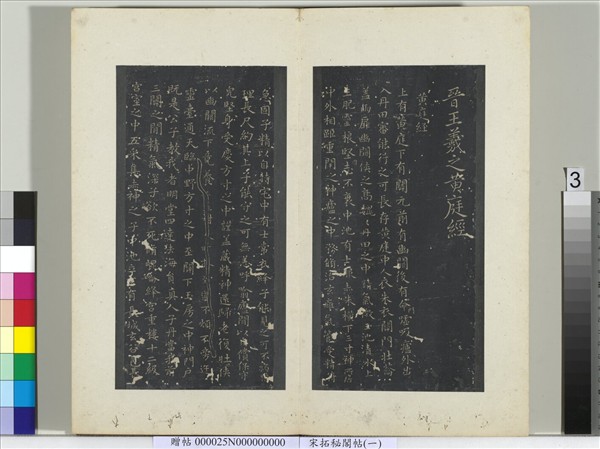 晉王羲之黃庭經
黃庭經
上有黃庭下有關元前有幽闕後有命門噓吸廬外出
入丹田審能行之可長存黃庭中人衣朱衣關門壯籥
蓋兩扉幽闕俠之高巍巍丹田之中精氣微玉池清水上
生肥靈根堅志不衰中池有士衣赤朱橫下三寸神所居
中外相距重閉之神廬之中務脩治玄廱氣管受精符
急固子精以自持宅中有士常衣絳子能見之可不病橫
理長尺約其上子能守之可無恙呼噏廬間以自償保守
完堅身受慶方寸之中謹蓋藏精神還歸老復壯俠
以幽闕流下竟養子玉樹不煩不旁迕
靈臺通天臨中野方寸之中至關下玉房之中神門戶
既是公子教我者明堂四達法海員真人子丹當我前
三關之間精氣深子欲不死脩崑崙絳宮重樓十二級
宮室之中五采集赤神之子中池立下有長城玄谷邑
3
贈帖 000025N000000000
宋拓秘閣帖(一)